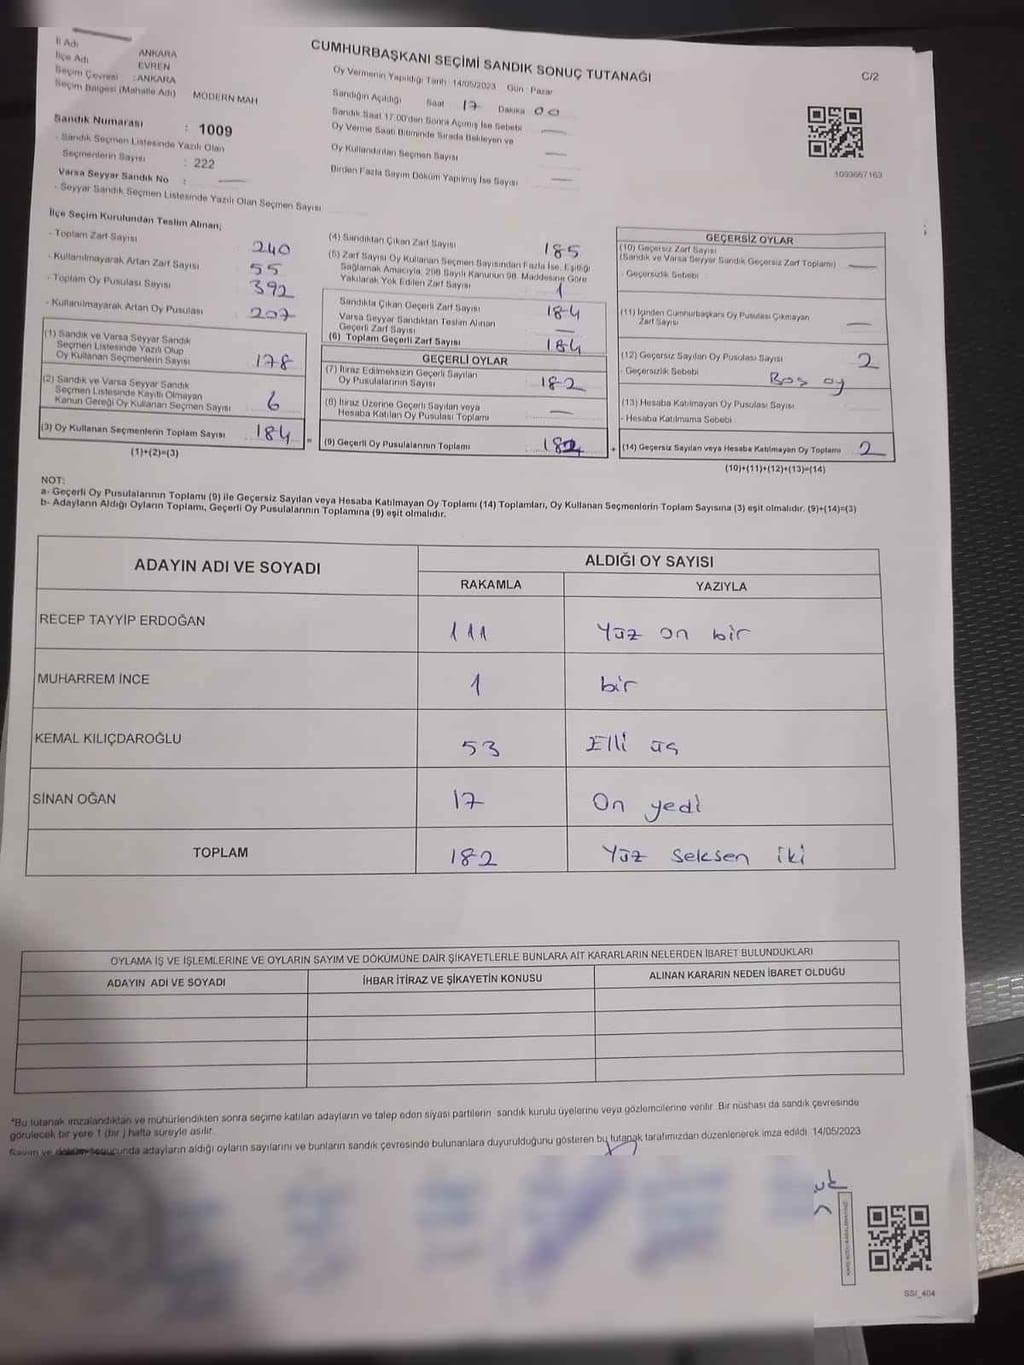 CUMHURBAŞKANI SEÇİMİ SANDIK SONUÇ TUTANAĞI
C/2
İl Adı ANKARA
İlçe Adı EVREN
Seçim Çevresi : ANKARA
Seçim Bölgesi (Mahalle Adı) MODERN MAH
Sandık Numarası : 1009
- Sandık Seçmen Listesinde Yazılı Olan
Seçmenlerin Sayısı : 222
Varsa Seyyar Sandık No : —
- Seyyar Sandık Seçmen Listesinde Yazılı Olan Seçmen Sayısı
Oy Vermenin Yapıldığı Tarih 14/05/2023 Gün : Pazar
Sandığın Açıldığı Saat 17 Dakika 00
Sandık Saat 17.00'den Sonra Açılmış İse Sebebi —
Oy Verme Saati Bitiminde Sırada Bekleyen ve
Oy Kullandırılan Seçmen Sayısı —
Birden Fazla Sayım Döküm Yapılmış İse Sayısı —
1093657163
İlçe Seçim Kurulundan Teslim Alınan;
- Toplam Zarf Sayısı 240
- Kullanılmayarak Artan Zarf Sayısı 55
- Toplam Oy Pusulası Sayısı 392
- Kullanılmayarak Artan Oy Pusulası 207
(1) Sandık ve Varsa Seyyar Sandık
Seçmen Listesinde Yazılı Olup
Oy Kullanan Seçmenlerin Sayısı 178
(2) Sandık ve Varsa Seyyar Sandık
Seçmen Listesinde Kayıtlı Olmayan
Kanun Gereği Oy Kullanan Seçmen Sayısı 6
(3) Oy Kullanan Seçmenlerin Toplam Sayısı 184 =
(1)+(2)=(3)
(4) Sandıktan Çıkan Zarf Sayısı 185
(5) Zarf Sayısı Oy Kullanan Seçmen Sayısından Fazla İse, Eşitliği
Sağlamak Amacıyla, 298 Sayılı Kanunun 98. Maddesine Göre
Yakılarak Yok Edilen Zarf Sayısı 1
Sandıkta Çıkan Geçerli Zarf Sayısı 184
Varsa Seyyar Sandıktan Teslim Alınan
Geçerli Zarf Sayısı —
(6) Toplam Geçerli Zarf Sayısı 184
GEÇERLİ OYLAR
(7) İtiraz Edilmeksizin Geçerli Sayılan
Oy Pusulalarının Sayısı 182
(8) İtiraz Üzerine Geçerli Sayılan veya
Hesaba Katılan Oy Pusulası Toplamı —
(9) Geçerli Oy Pusulalarının Toplamı 182 +
GEÇERSİZ OYLAR
(10) Geçersiz Zarf Sayısı
(Sandık ve Varsa Seyyar Sandık Geçersiz Zarf Toplamı) —
- Geçersizlik Sebebi
(11) İçinden Cumhurbaşkanı Oy Pusulası Çıkmayan
Zarf Sayısı —
(12) Geçersiz Sayılan Oy Pusulası Sayısı 2
- Geçersizlik Sebebi Boş oy
(13) Hesaba Katılmayan Oy Pusulası Sayısı
- Hesaba Katılmama Sebebi
(14) Geçersiz Sayılan veya Hesaba Katılmayan Oy Toplamı 2
(10)+(11)+(12)+(13)=(14)
NOT:
a- Geçerli Oy Pusulalarının Toplamı (9) ile Geçersiz Sayılan veya Hesaba Katılmayan Oy Toplamı (14) Toplamları, Oy Kullanan Seçmenlerin Toplam Sayısına (3) eşit olmalıdır. (9)+(14)=(3)
b- Adayların Aldığı Oyların Toplamı, Geçerli Oy Pusulalarının Toplamına (9) eşit olmalıdır.
ADAYIN ADI VE SOYADI ALDIĞI OY SAYISI
RAKAMLA YAZIYLA
RECEP TAYYİP ERDOĞAN 111 Yüz on bir
MUHARREM İNCE 1 bir
KEMAL KILIÇDAROĞLU 53 Elli üç
SİNAN OĞAN 17 On yedi
TOPLAM 182 Yüz seksen iki
OYLAMA İŞ VE İŞLEMLERİNE VE OYLARIN SAYIM VE DÖKÜMÜNE DAİR ŞİKAYETLERLE BUNLARA AİT KARARLARIN NELERDEN İBARET BULUNDUKLARI
ADAYIN ADI VE SOYADI İHBAR İTİRAZ VE ŞİKAYETİN KONUSU ALINAN KARARIN NEDEN İBARET OLDUĞU
*Bu tutanak imzalandıktan ve mühürlendikten sonra seçime katılan adayların ve talep eden siyasi partilerin sandık kurulu üyelerine veya gözlemcilerine verilir. Bir nüshası da sandık çevresinde
görülecek bir yere 1 (bir) hafta süreyle asılır.
Sayım ve döküm sonucunda adayların aldığı oyların sayılarını ve bunların sandık çevresinde bulunanlara duyurulduğunu gösteren bu tutanak tarafımızdan düzenlenerek imza edildi. 14/05/2023
SSI_404